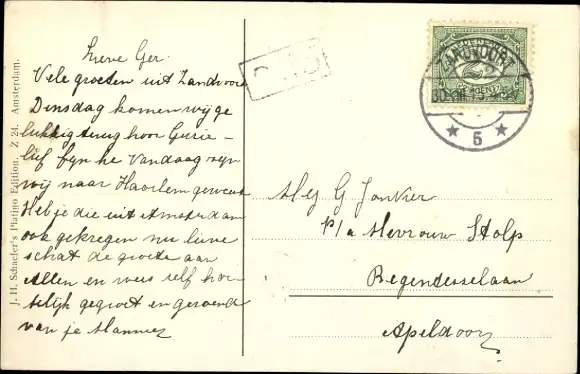 Lieve Ger.
Vele groeten uit Zandvoort
Dinsdag komen wij ge
lukkig terug hoor Gurie-
lief fyn he Vandaag zyn
wij naar Haarlem geweest
Heb je die uit Amsterdam
ook gekregen nu lieve
schat de groete aan
Allen en wees zelf har
telijk gegroet en gezoend
van je Mannie
J. H. Schaefer's Platino Edition. Z 24. Amsterdam.
ZANDVOORT
5
Mej G Jonker
p/a Mevrouw Stolp
Regentesselaan
Apeldoorn